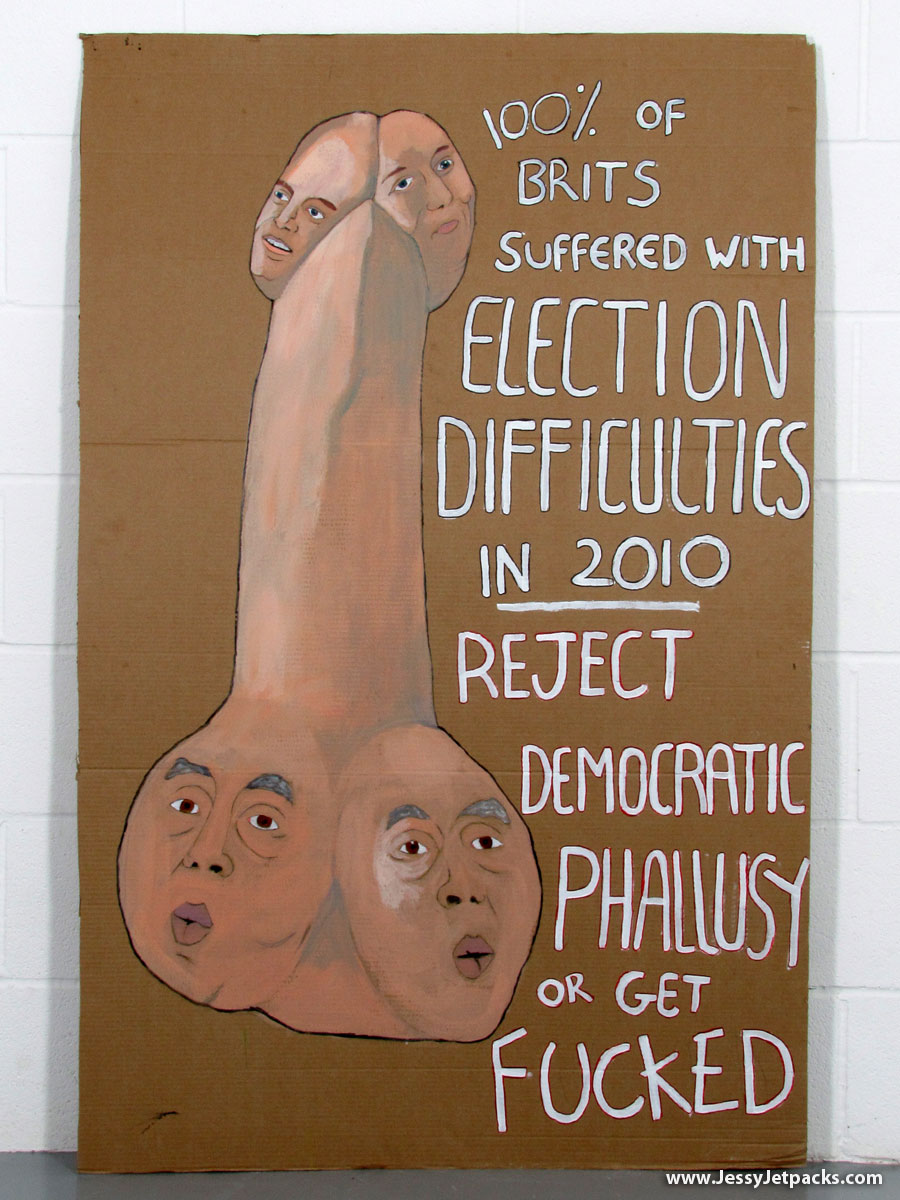 100% OF
BRITS
SUFFERED WITH
ELECTION
DIFFICULTIES
IN 2010
REJECT
DEMOCRATIC
PHALLUSY
OR GET
FUCKED
www.JessyJetpacks.com